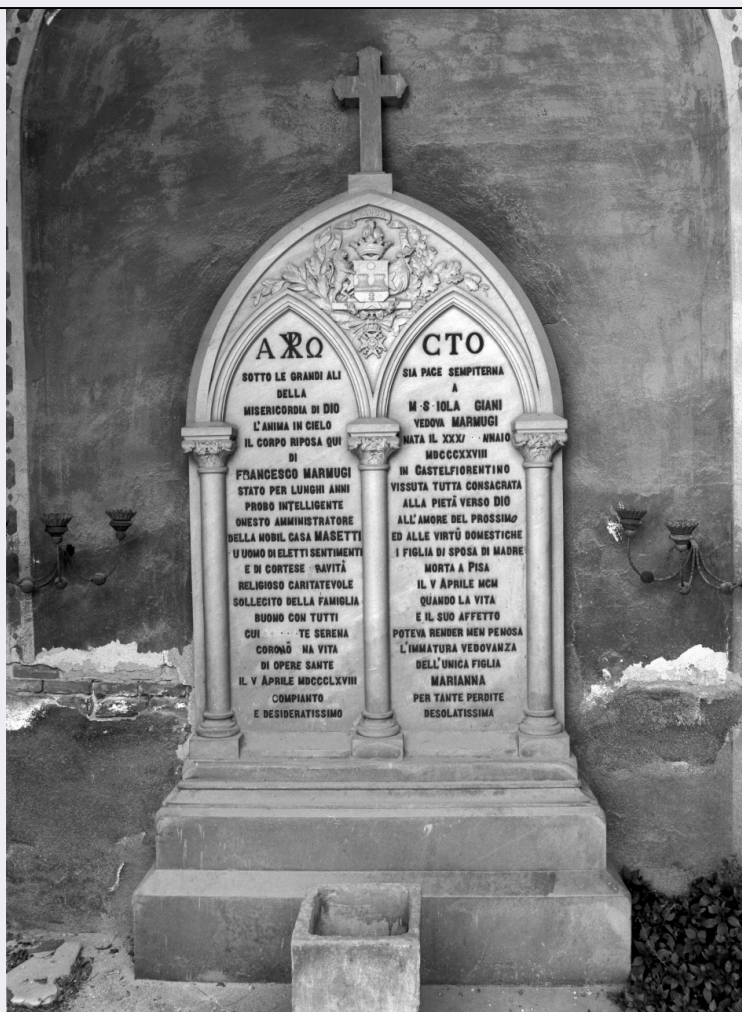 Α☧Ω
SOTTO LE GRANDI ALI
DELLA
MISERICORDIA DI DIO
L'ANIMA IN CIELO
IL CORPO RIPOSA QUI
DI
FRANCESCO MARMUGI
STATO PER LUNGHI ANNI
PROBO INTELLIGENTE
ONESTO AMMINISTRATORE
DELLA NOBIL CASA MASETTI
UOMO DI ELETTI SENTIMENTI
E DI CORTESE RAVITÀ
RELIGIOSO CARITATEVOLE
SOLLECITO DELLA FAMIGLIA
BUONO CON TUTTI
CUI TE SERENA
CORONÒ NA VITA
DI OPERE SANTE
IL V APRILE MDCCCLXVIII
COMPIANTO
E DESIDERATISSIMO
CTO
SIA PACE SEMPITERNA
A
M S IOLA GIANI
VEDOVA MARMUGI
NATA IL XXXI NNAIO
MDCCCXXVIII
IN CASTELFIORENTINO
VISSUTA TUTTA CONSACRATA
ALLA PIETÀ VERSO DIO
ALL'AMORE DEL PROSSIMO
ED ALLE VIRTÙ DOMESTICHE
I FIGLIA DI SPOSA DI MADRE
MORTA A PISA
IL V APRILE MCM
QUANDO LA VITA
E IL SUO AFFETTO
POTEVA RENDER MEN PENOSA
L'IMMATURA VEDOVANZA
DELL'UNICA FIGLIA
MARIANNA
PER TANTE PERDITE
DESOLATISSIMA